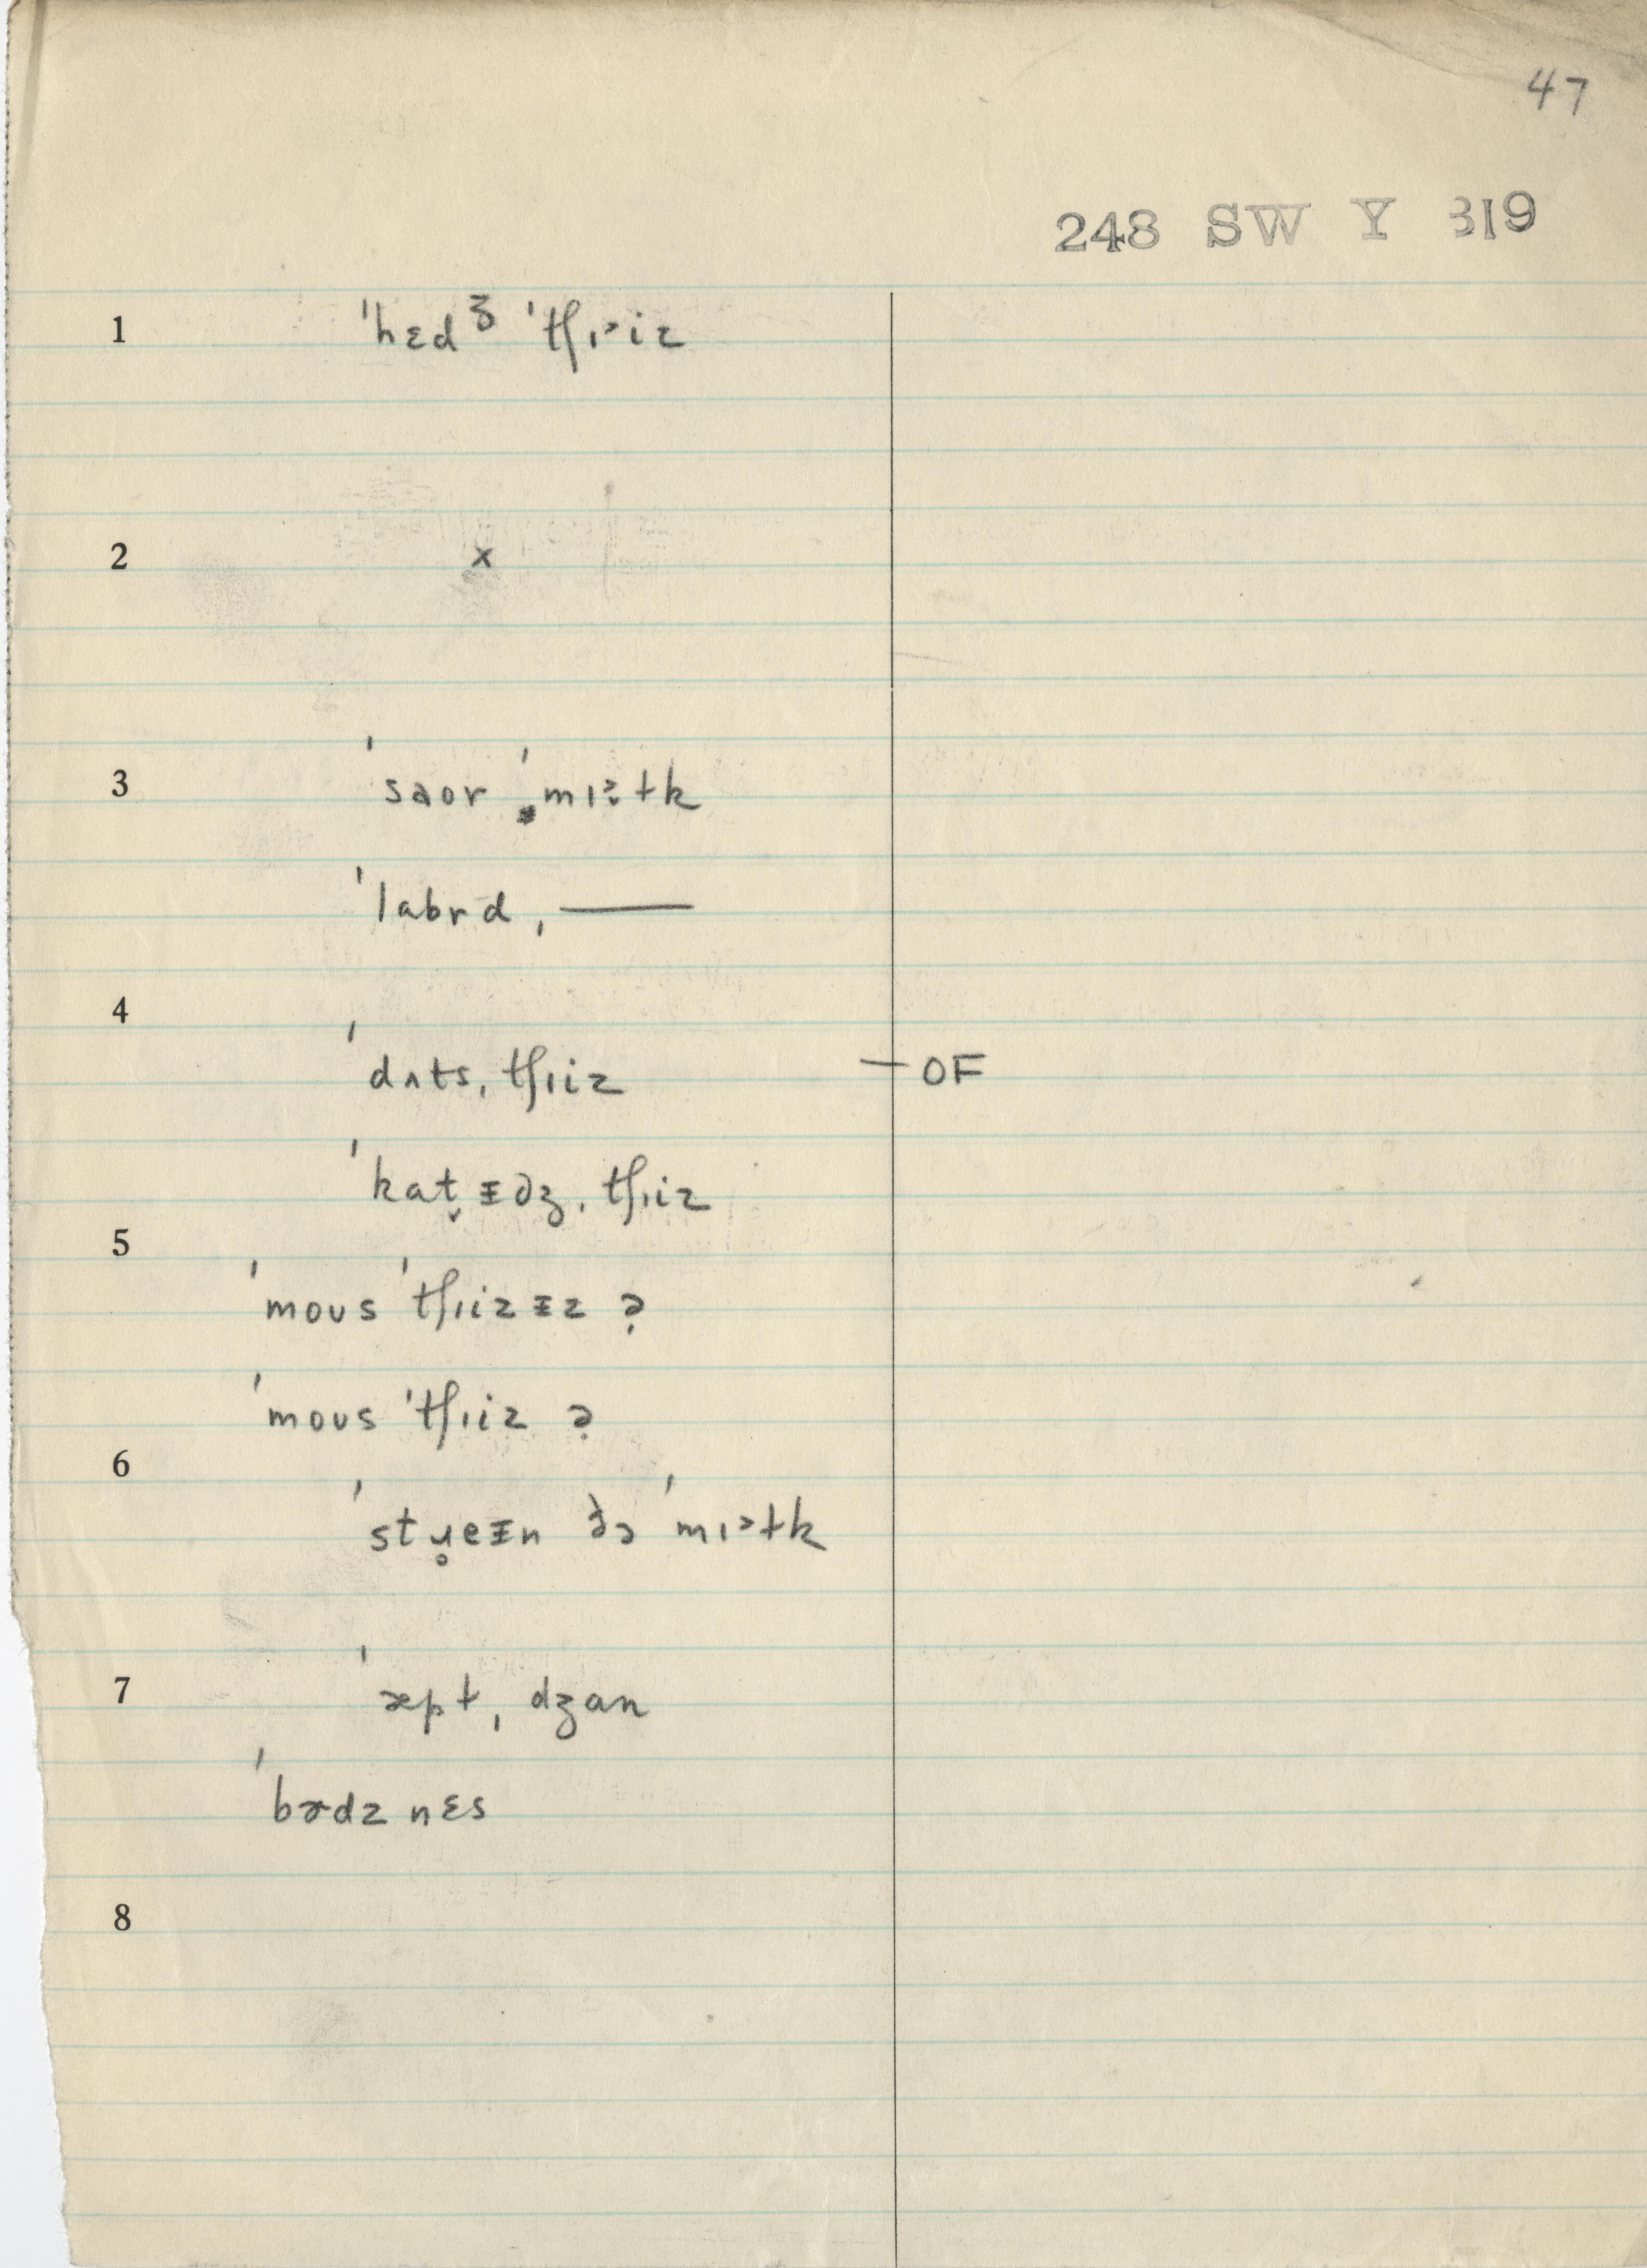 47
248 SW Y 319
1 ˈhɛdᶾ ˈtʃɪ˃iz
2 x
3 ˈsaʊr ˈmɪ˃ɫk
ˈlabrd ˌ———
4 ˈdʌtsˌtʃɪiz — OF
ˈkat̬ɪdʒˌtʃɪiz
5 ˈmoʊs ˈtʃɪizɪz ?
ˈmoʊs ˈtʃɪiz ?
6 ˈstɹ̥eɪn ðə ˈmɪ˃ɫk
7 ˈæpɫˌdʒan
ˈbɚdz nɛs
8